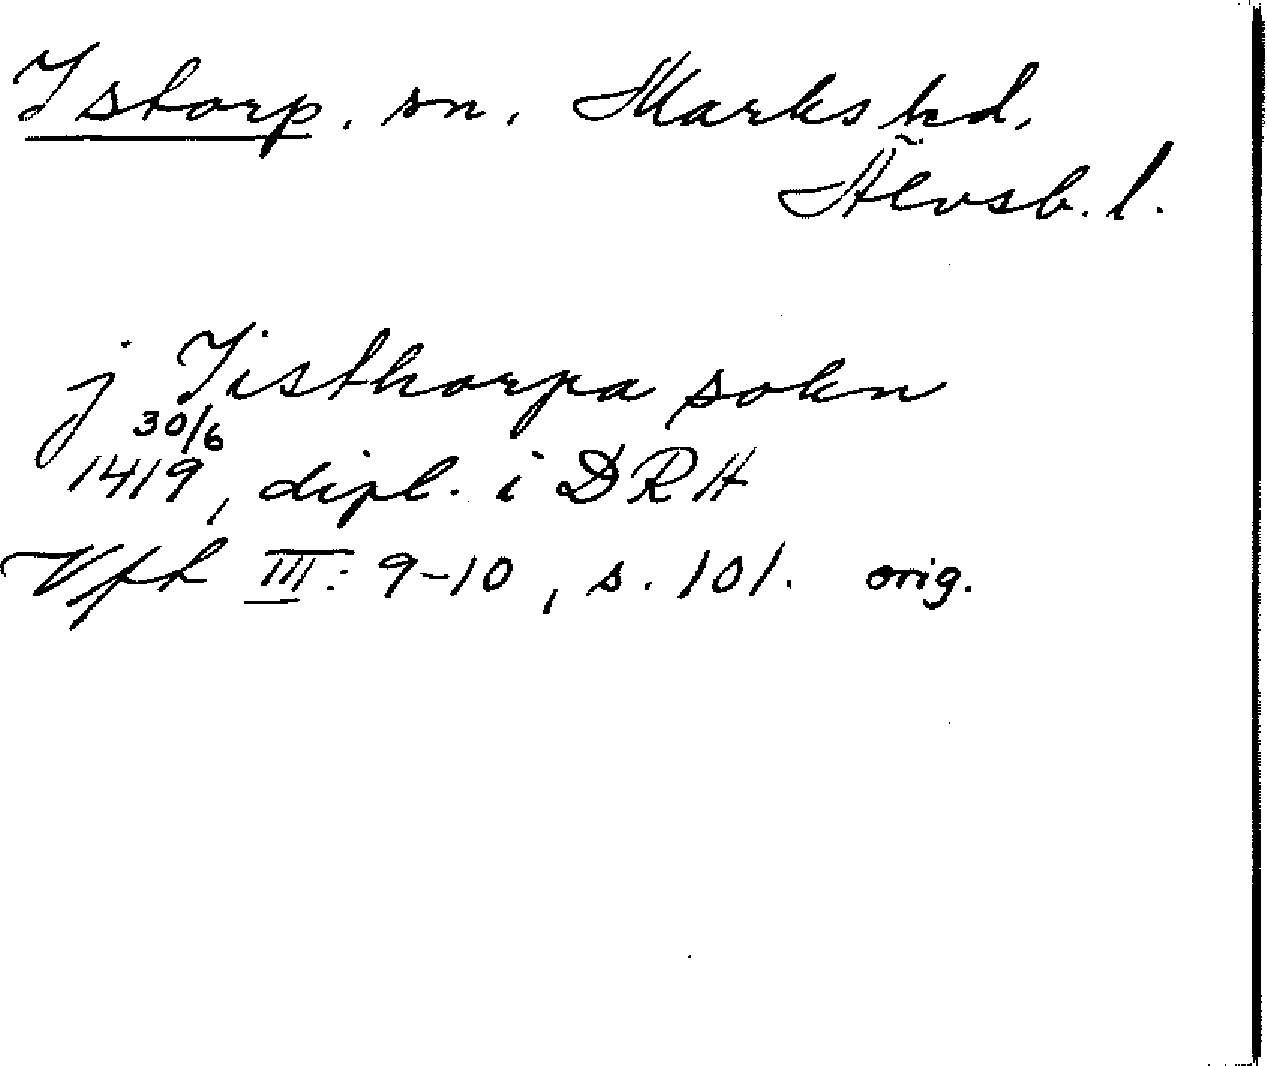 Istorp, sn, Marks hd,
Älvsb. l.
j Jisthorpa sokn
30/6
1419, dipl. i DRA
Vfh III: 9-10, s. 101. orig.